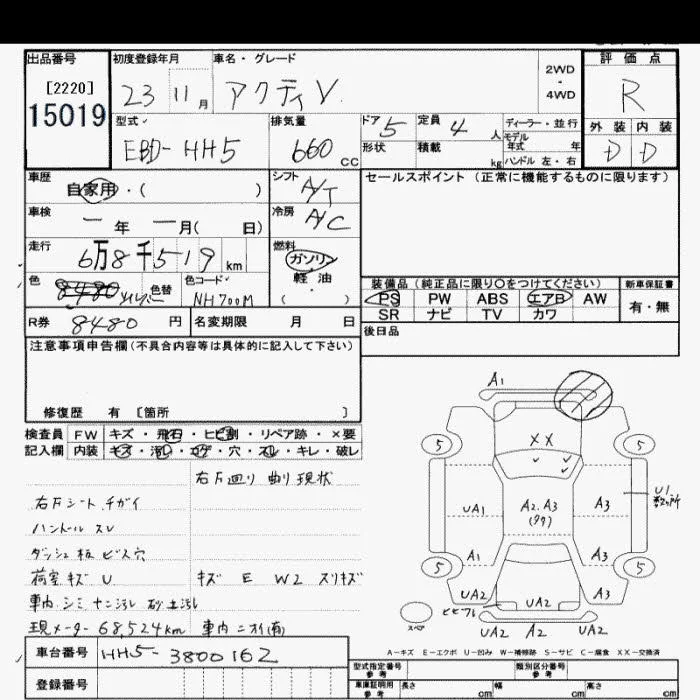 出品番号
[2220]
15019
初度登録年月
23 11月
車名・グレード
アクティ V
2WD
・
4WD
評価点
R
型式
EBD-HH5
排気量
660 CC
ドア 5
形状
定員 4 人
積載 kg
ディーラー・並行
モデル
年式 年
ハンドル 左・右
外装 内装
D D
車歴
自家用・( )
シフト
A/T
車検
一年 一月( 日)
冷房
A/C
走行
6万8千519 km
燃料
ガソリン
軽油
( )
色
8480
色替
色コード
NH700M
R券 8480 円
名変期限 月 日
セールスポイント(正常に機能するものに限ります)
装備品(純正品に限り○をつけてください)
PS PW ABS エアB AW
SR ナビ TV カワ
新車保証書
有・無
後日品
注意事項申告欄(不具合内容等は具体的に記入して下さい)
修復歴 有 [箇所 ]
検査員 FW キズ・飛石・ヒビ割・リペア跡・×要
記入欄 内装 キズ・汚レ・コゲ・穴・スレ・キレ・破レ
右方廻り 曲り 現状
右方シート チガイ
ハンドル スレ
ダッシュ板 ビス穴
荷室 キズ U
キズ E W2 スリキズ
車内 シミ ナニ汚レ 砂土汚レ
現メーター 68,524km
車内 ニオイ(有)
A1
XX
5
5
UA1
A2.A3
A3
U1
A1
A3
5
5
UA2
UA2
A3
スペア
ヒビワレ
UA2 A2 UA2
A-キズ E-エクボ U-凹み W-補修跡 S-サビ C-腐食 XX-交換済
車台番号 HH5-3800162
登録番号
型式指定番号
参考
類別区分番号
参考
車庫証明用
参考
長さ cm
幅 cm
高さ cm